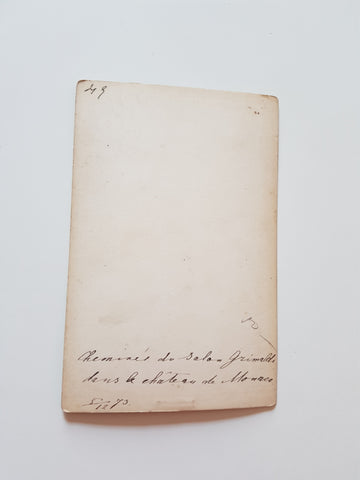 49
Cheminée du salon Grimaldi
dans le château de Monaco
5/12 73